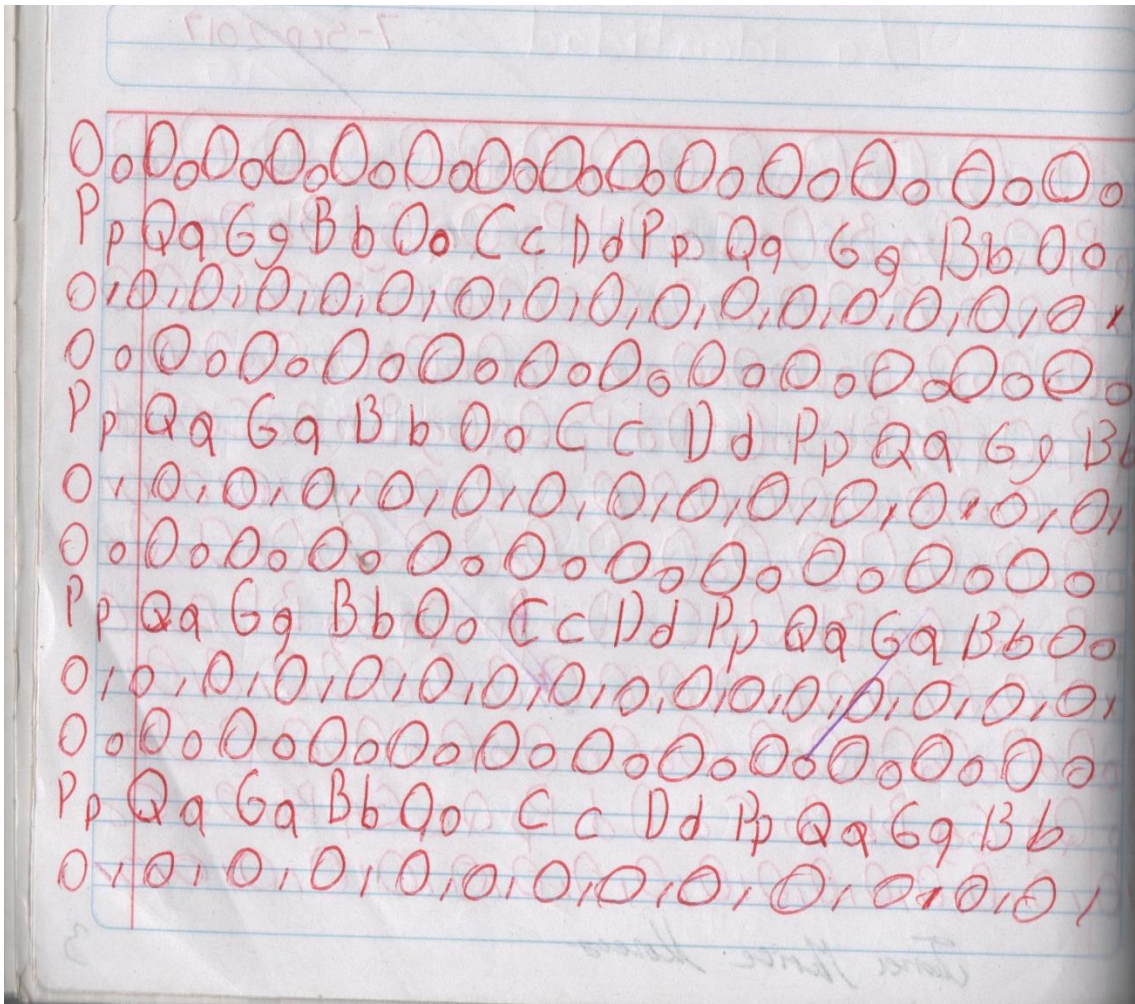 O o O o O o O o O o O o O o O o O o O o O o O o O o O o
P p Q q G g B b O o C c D d P p Q q G g B b O o
O , O , O , O , O , O , O , O , O , O , O , O , O , O , O , O ,
O o O o O o O o O o O o O o O o O o O o O o O o
P p Q q G g B b O o C c D d P p Q q G g B b
O , O , O , O , O , O , O , O , O , O , O , O , O , O ,
O o O o O o O o O o O o O o O o O o O o O o
P p Q q G g B b O o C c D d P p Q q G g B b O o
O , O , O , O , O , O , O , O , O , O , O , O , O , O , O , O ,
O o O o O o O o O o O o O o O o O o O o O o O o
P p Q q G g B b O o C c D d P p Q q G g B b
O , O , O , O , O , O , O , O , O , O , O , O , O ,